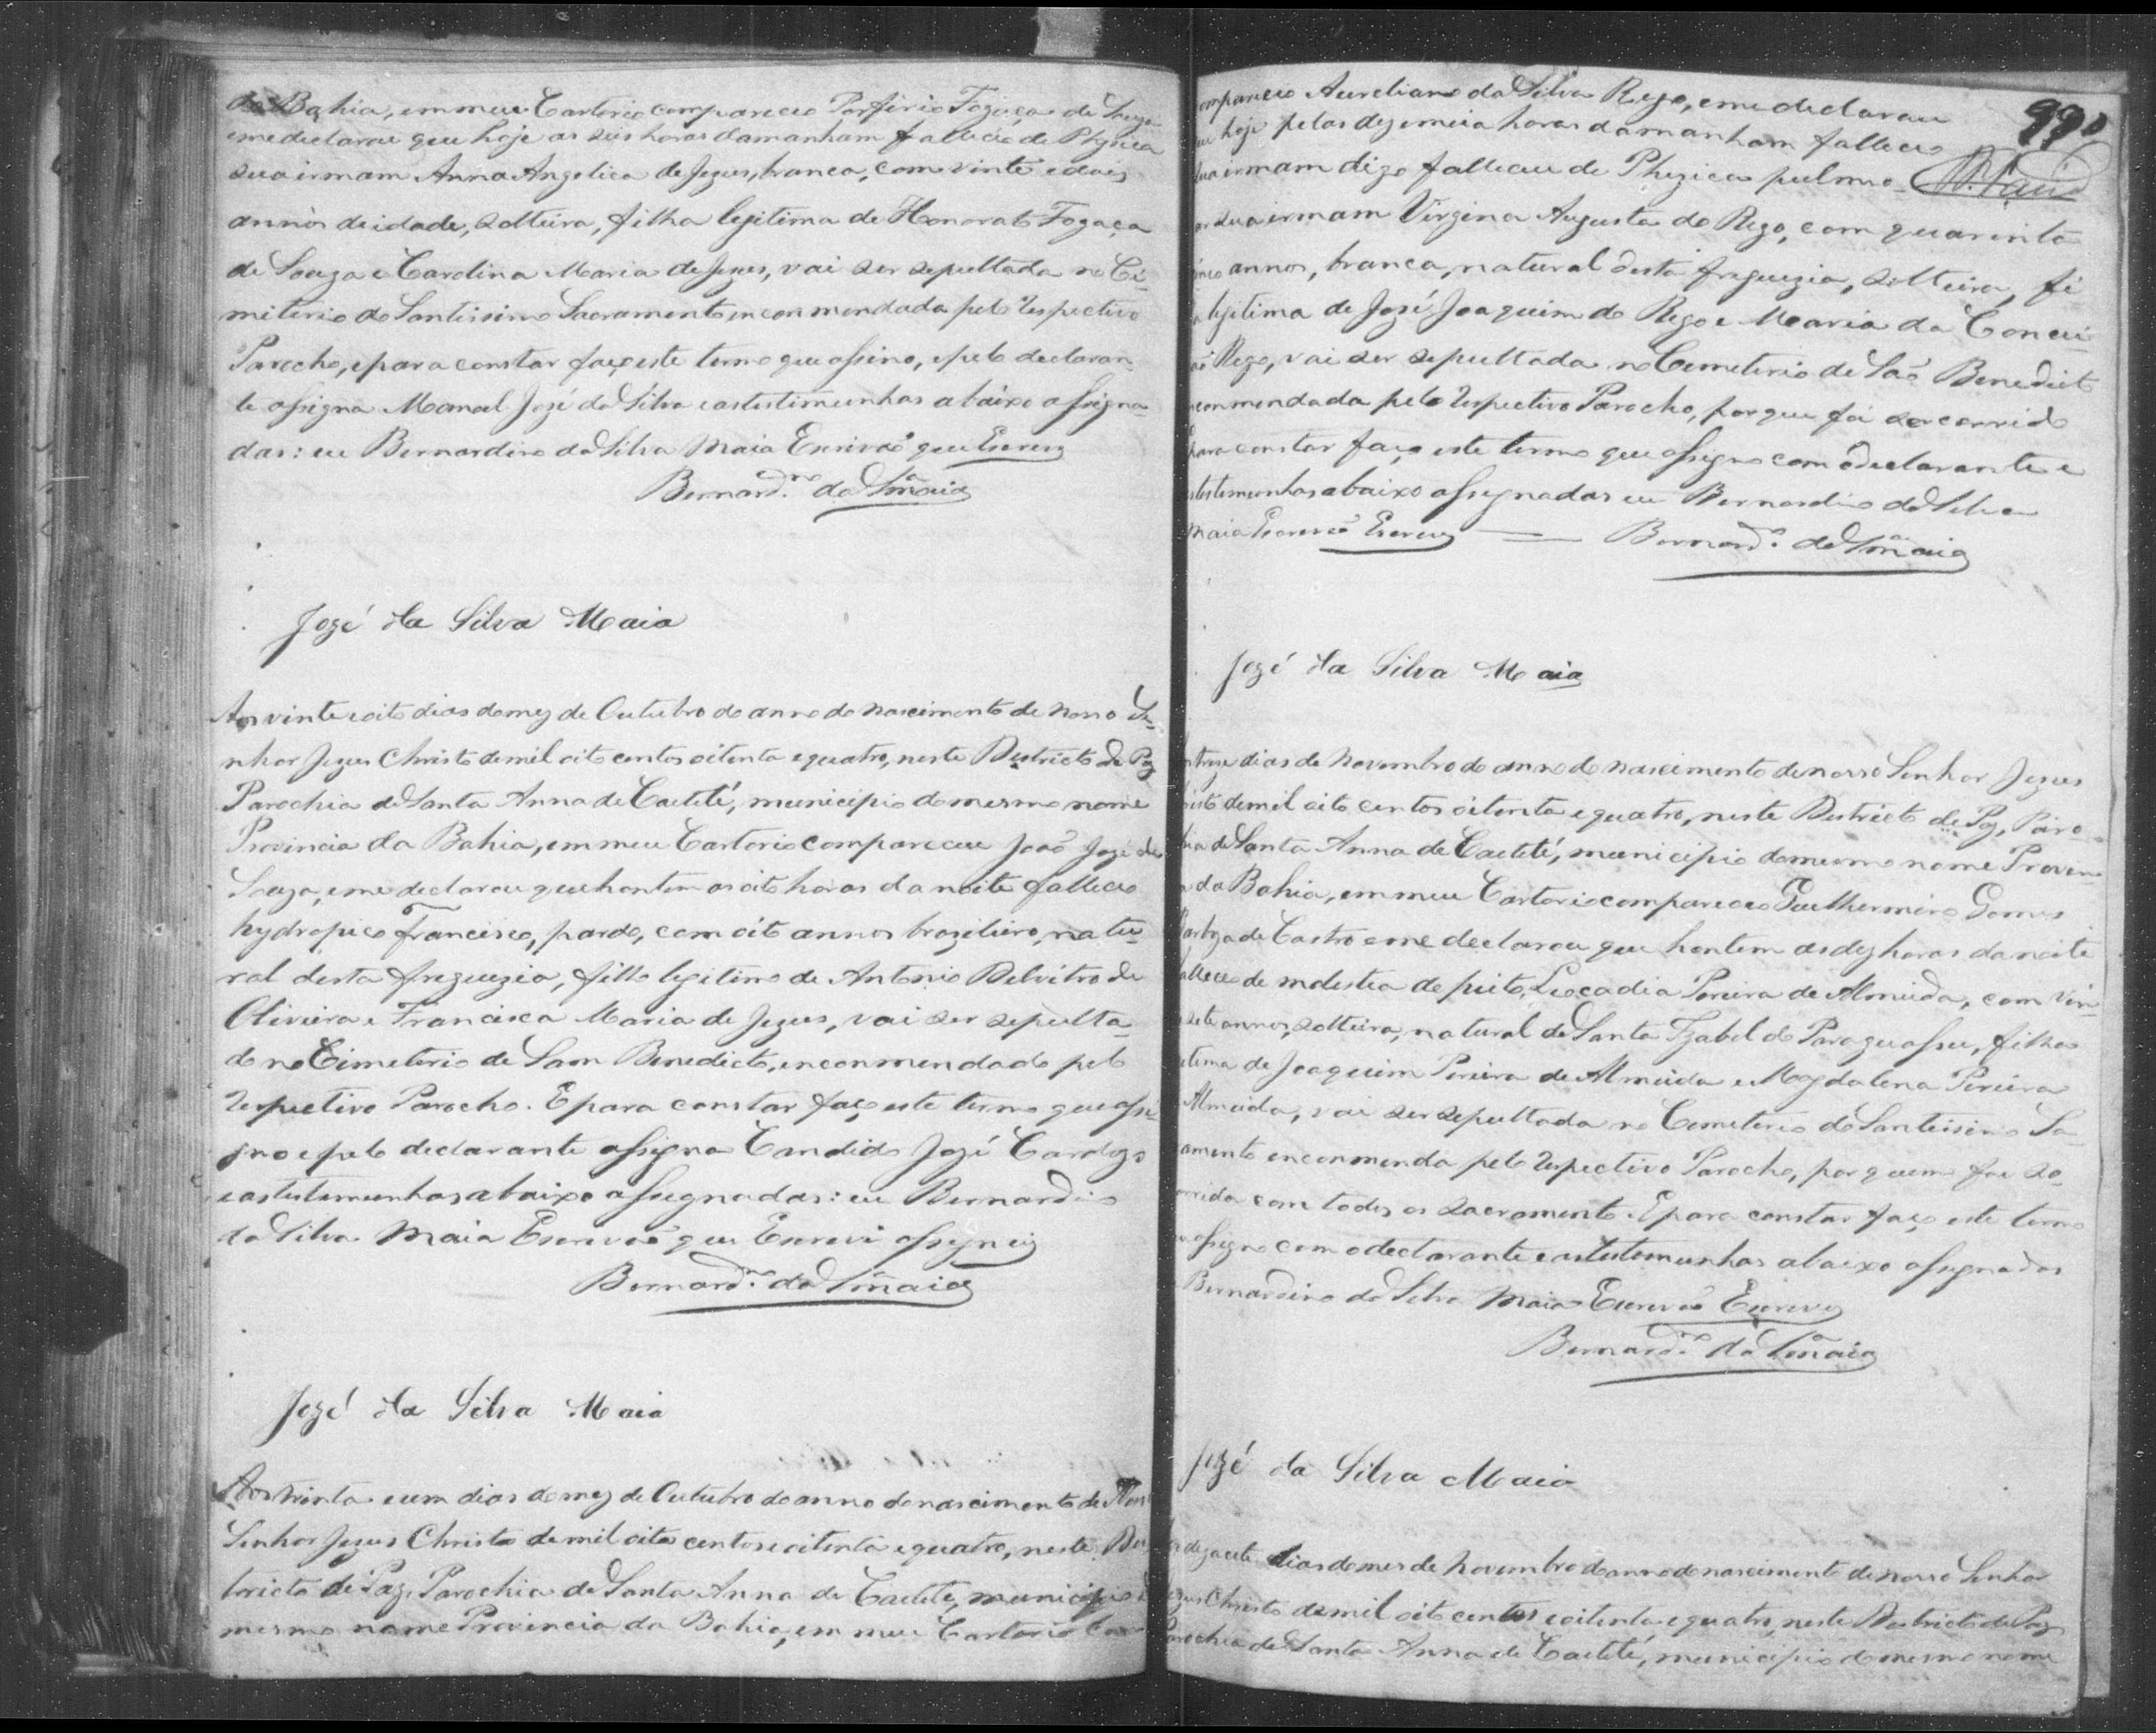 da Bahia, em meu Cartorio compareceo Porfirio Fogaça de Souza
e me declarou que hoje as seis horas da manham falleceo de Physica
sua irmam Anna Angelica de Jezus, branca, com vinte e dois
annos de idade, solteira, filha legitima de Honorato Fogaça
de Souza e Carolina Maria de Jezus, vai ser sepultada no Ci-
miterio do Santissimo Sacramento enconmendada pelo respectivo
Parocho, e para constar faço este termo que assino, e pelo declaran-
te assigna Manoel José da Silva e as testimunhas abaixo assigna-
das: eu Bernardino da Silva Maia Escrivaõ que Escrevy
Bernard.no da S.a Maia
Jozé da Silva Maia
Aos vinte e oito dias do mez de Outubro do anno do nascimento de nosso Se-
nhor Jezus Christo de mil oito centos oitenta e quatro, neste Destricto de Paz
Parochia de Santa Anna de Caeteté, municipio do mesmo nome
Provincia da Bahia, em meu Cartorio compareceu Joaõ Jozé de
Souza, e me declarou que hontem as oito horas da noite falleceo
hydropico Francisco, pardo, com oito annos brazileiro, natu-
ral desta freguezia, filho legitimo de Antonio Belvitro de
Oliveira e Francisca Maria de Jezus, vai ser sepulta-
do no Cimeterio de Sam Benedicto, enconmendado pelo
respectivo Parocho. E para constar faço este termo que assi-
gno e pelo declarante assigna Candido Jozé Cardozo
e as testemunhas abaixo assegnadas: eu Bernardino
da Silva Maia Escrevaõ que Escrevi assigney
Bernard.no da S.a Maia
Jozé da Silva Maia
Aos trinta e um dias do mez de Outubro do anno do nascimento de Nosso
Senhor Jezus Christo de mil oito centos e oitenta e quatro, neste Des-
tricto de Paz, Parochia de Santa Anna de Caeteté, municipio do
mesmo nome Provincia da Bahia, em meu Cartorio com
99
compareceo Aureliano da Silva Rego, e me declarou
que hoje pelas dez e meia horas da manham falleceo
sua irmam digo falleceu de Phyzica pulmo-
nar sua irmam Virgina Augusta do Rego, com quarenta
e cinco annos, branca, natural desta freguezia, solteira, fi
lha legitima de José Joaquim do Rego e Maria da Concei
çaõ Rego, vai ser sepultada no Cemeterio de Saõ Benedicto
enconmendada pelo respectivo Parocho, por quem foi socorrida
para constar faço este termo que assigno com o declarante e
as testemunhas abaixo assegnadas eu Bernardino da Silva
Maia Escrevaõ Escrevy Bernard.o da S.a Maia
Jozé da Silva Maia
treze dias de Novembro do anno do nascimento de nosso Senhor Jezus
Christo de mil oito centos oitenta e quatro, neste Destricto de Paz, Paro-
chia de Santa Anna de Caeteté, municipio do mesmo nome Provin-
cia da Bahia, em meu Cartorio compareceo Guilhermino Gomes
de Castro e me declarou que hontem as dez horas da noite
falleceo de molestia de peito, Leocadia Pereira de Almeida, com vin-
te e sete annos, solteira, natural de Santa Izabel do Paraguassu, filha
legitima de Joaquim Pereira de Almeida e Magdalena Pereira
Almeida, vai ser sepultada no Cemeterio do Santissimo Sa-
cramento enconmenda pelo respectivo Parocho, por quem foi so-
corrida com todos os sacramento. E para constar faço este termo
que assigno com o declarante e as testemunhas abaixo assegnados
Bernardino da Silva Maia Escrevaõ Escrevy
Bernard.no da S.a Maia
Jozé da Silva Maia
Aos dezacete dias do mes de Novembro do anno do nascimento de nosso Senhor
Jezus Christo de mil oito centos e oitenta e quatro, neste Destricto de Paz
Parochia de Santa Anna de Caeteté, municipio do mesmo nome